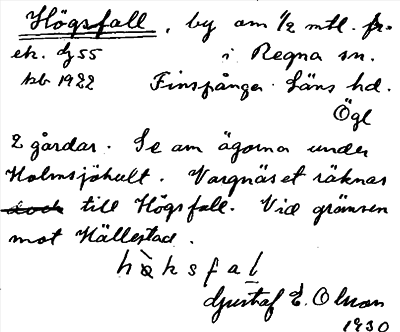 Högsfall, by om 1/2 mtl. fr.
ek. bl 55 i Regna sn.
kb 1922 Finspånga Läns hd.
Ögl
2 gårdar. Se om ägorna under
Holmsjöhult. Vargnäset räknas
till Högsfall. Vid gränsen
mot Hällestad.
höksfal
Gustaf E. Olson
1930